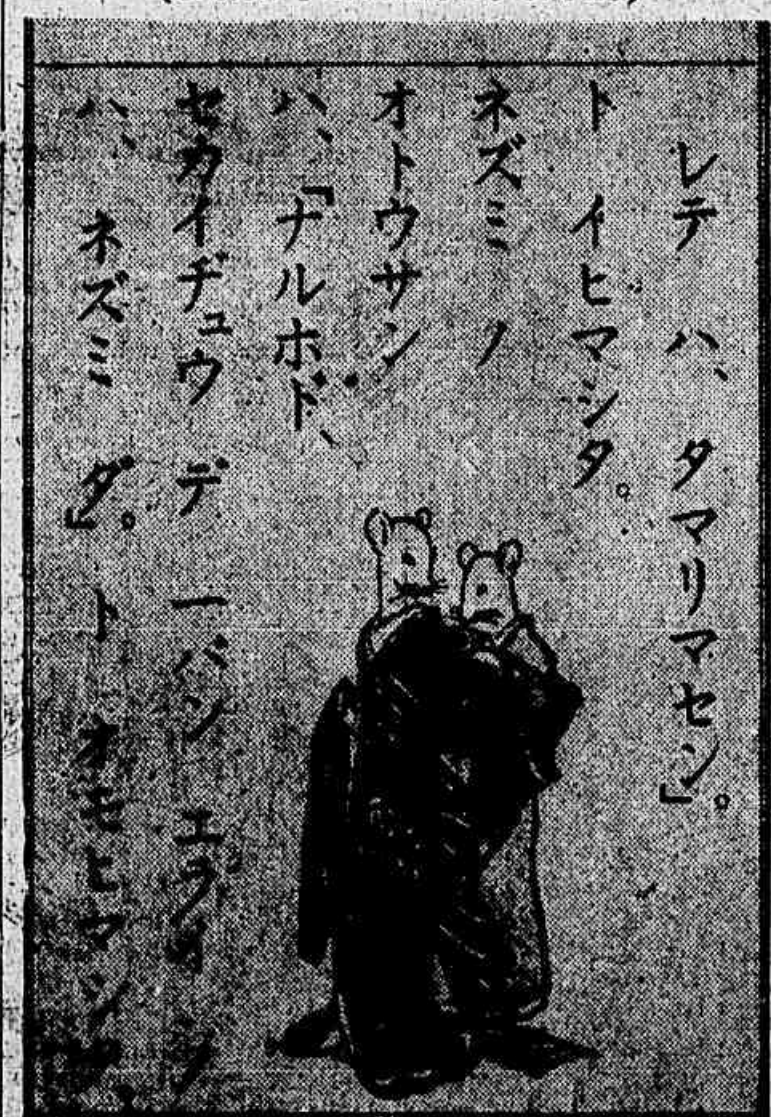 レテ ハ、 タマリマセン」。
ト イヒマシタ。
ネズミ ノ
オトウサン
ハ、「ナルホド、
セカイヂュウ デ 一バン エライ ノ
ハ、 ネズミ ダ。」 ト オモヒマシタ。